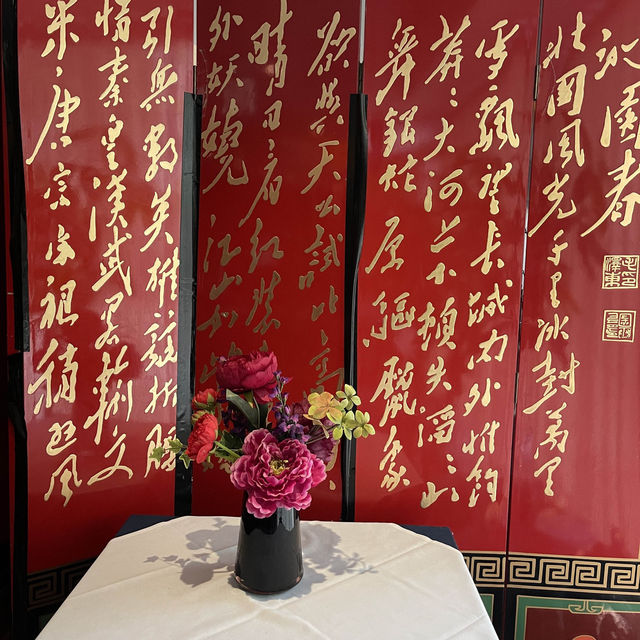 沁園春
毛澤東印
北國風光千里冰封萬里
雪飘望长城内外惟餘
莽莽大河上下頓失滔滔山
舞銀蛇原驅臘象
欲與天公試比高
晴日看红裝
外妖嬈江山如
引無數英雄競折腰
惜秦皇漢武略輸文
采唐宗宋祖稍逊風